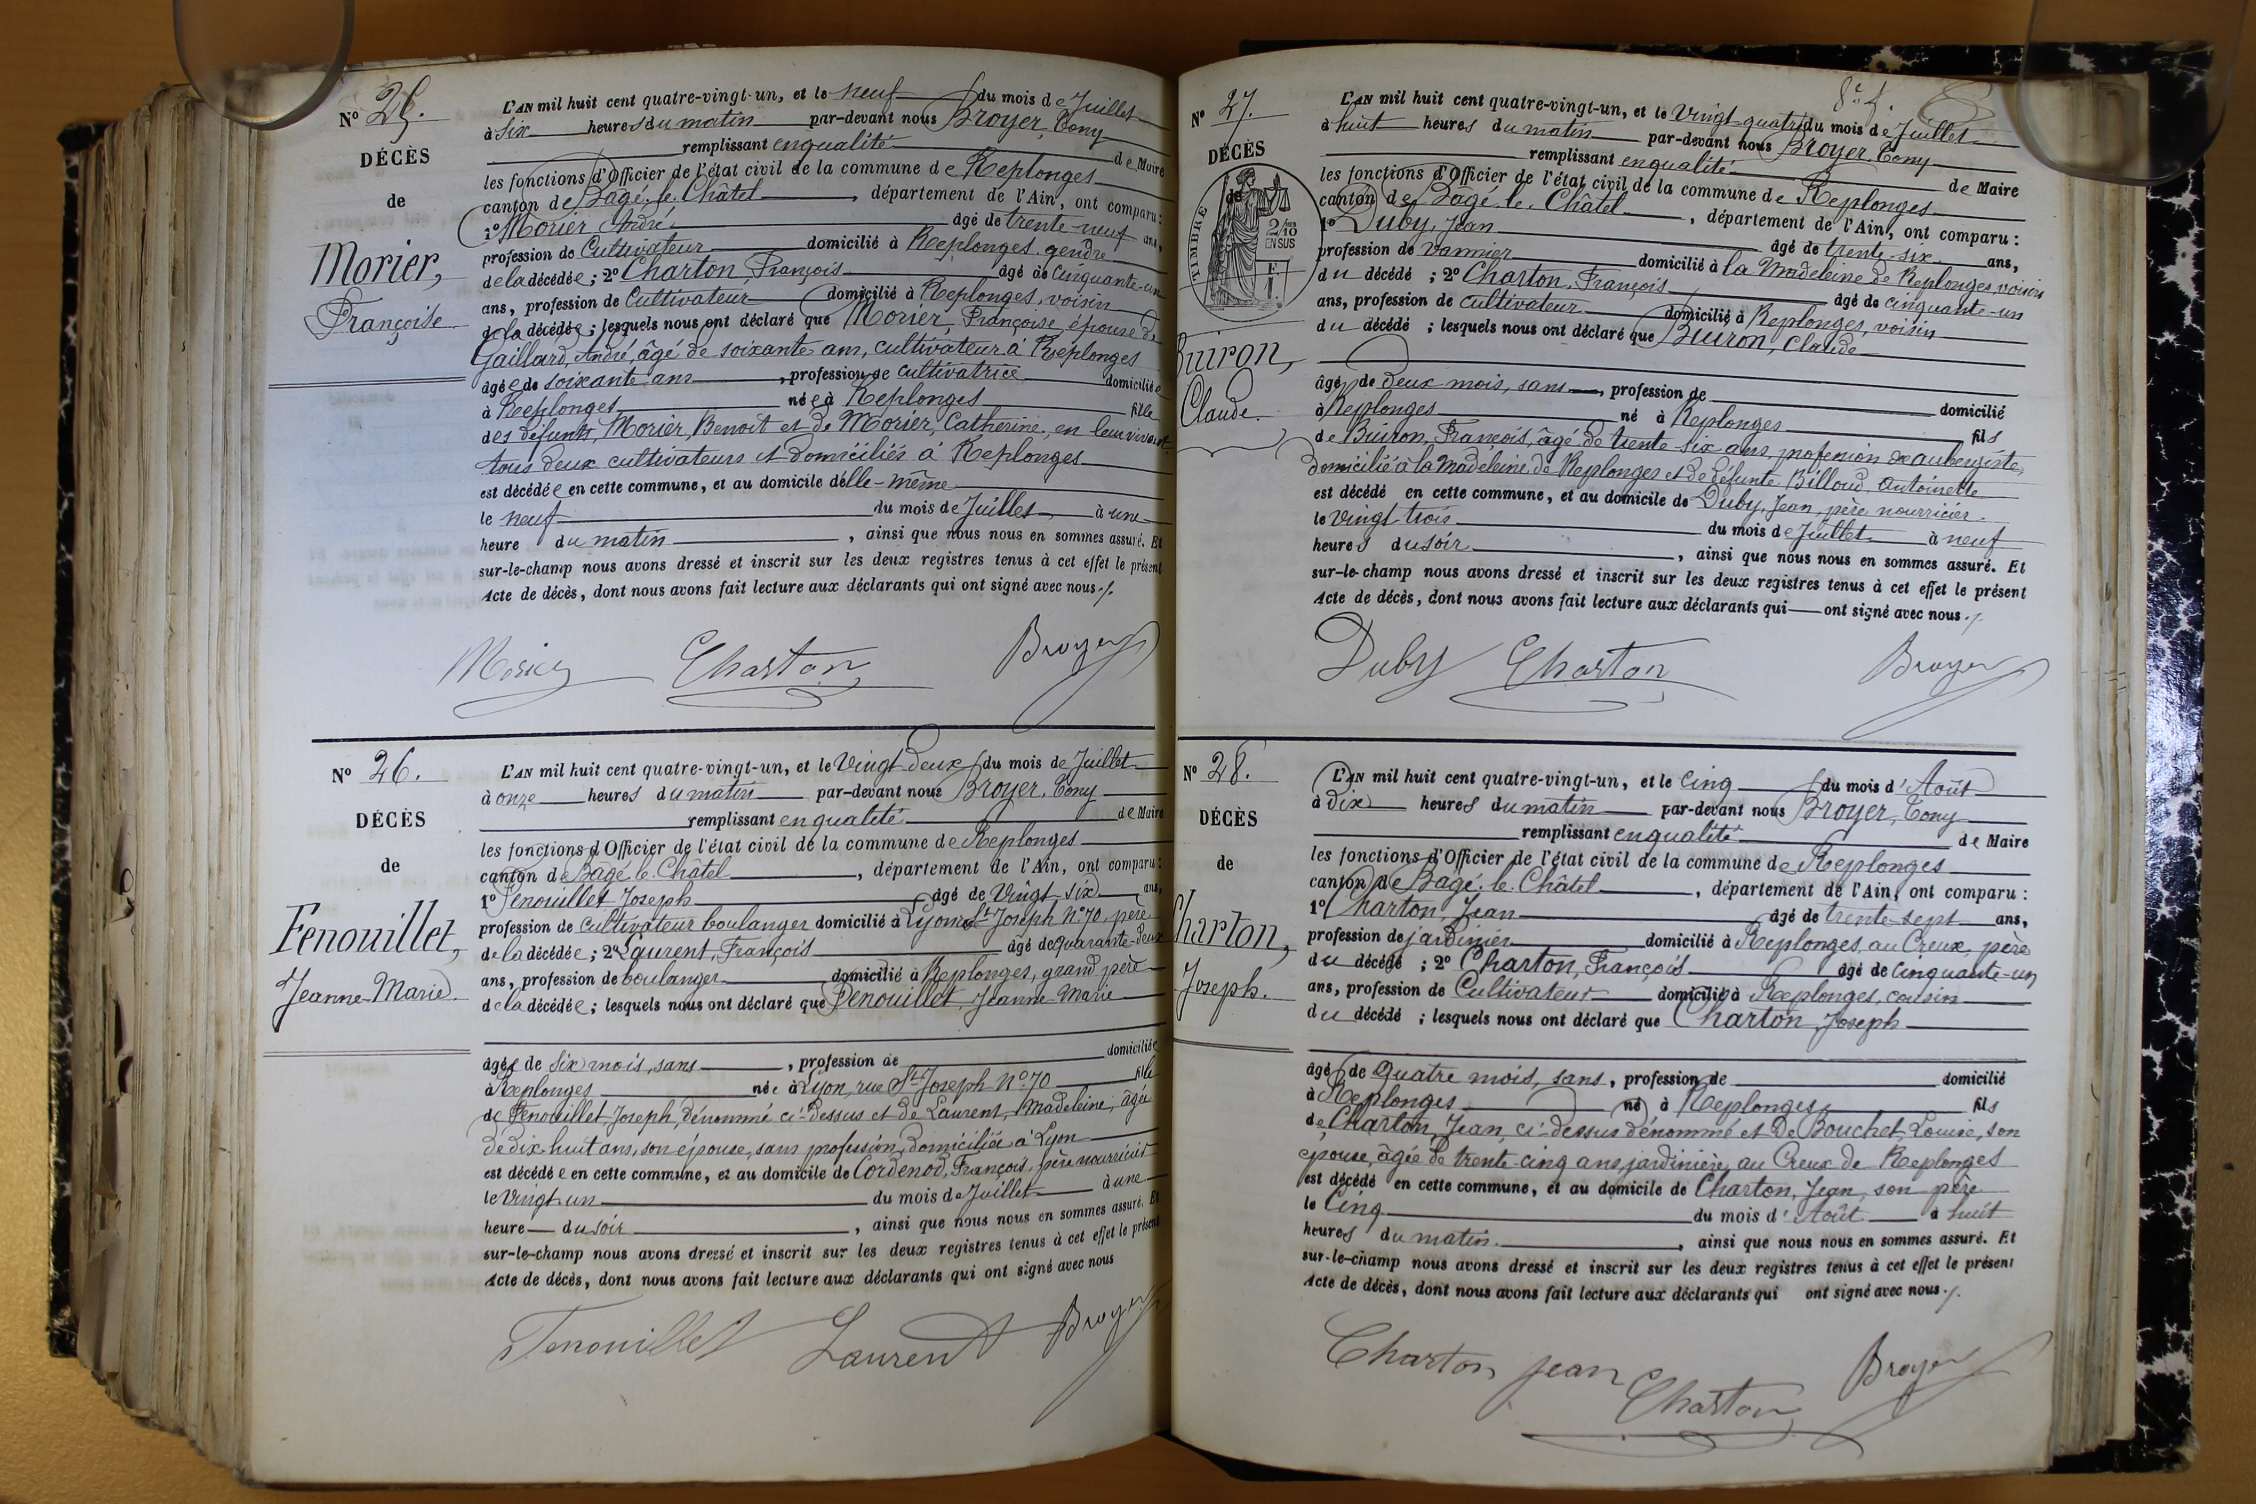 N° 25.
DÉCÈS
de
Morier,
Françoise
L'AN mil huit cent quatre-vingt-un, et le neuf du mois de Juillet
à six heures du matin par-devant nous Broyer, Tony
remplissant en qualité de Maire
les fonctions d'Officier de l'état civil de la commune de Replonges
canton de Bâgé-le-Châtel, département de l'Ain, ont comparu :
1° Morier André âgé de trente-neuf ans,
profession de Cultivateur domicilié à Replonges, gendre
de la décédée ; 2° Charton, François âgé de Cinquante-un
ans, profession de Cultivateur domicilié à Replonges, voisin
de la décédée ; lesquels nous ont déclaré que Morier, Françoise, épouse de
Gaillard, André, âgé de soixante ans, cultivateur à Replonges
âgée de soixante ans, profession de cultivatrice domiciliée
à Replonges née à Replonges fille
des défunts, Morier, Benoît et de Morier, Catherine, en leur vivant
tous deux cultivateurs et domiciliés à Replonges
est décédée en cette commune, et au domicile d'elle-même
le neuf du mois de Juillet à une
heure du matin, ainsi que nous nous en sommes assuré. Et
sur-le-champ nous avons dressé et inscrit sur les deux registres tenus à cet effet le présent
Acte de décès, dont nous avons fait lecture aux déclarants qui ont signé avec nous./.
Morier Charton Broyer
N° 26.
DÉCÈS
de
Fenouillet,
Jeanne-Marie.
L'AN mil huit cent quatre-vingt-un, et le Vingt-deux du mois de Juillet
à onze heures du matin par-devant nous Broyer, Tony
remplissant en qualité de Maire
les fonctions d'Officier de l'état civil de la commune de Replonges
canton de Bâgé-le-Châtel, département de l'Ain, ont comparu :
1° Fenouillet Joseph âgé de Vingt-six ans,
profession de cultivateur boulanger domicilié à Lyon, St Joseph N° 70, père
de la décédée ; 2° Laurent, François âgé de quarante-deux
ans, profession de boulanger domicilié à Replonges, grand père
de la décédée ; lesquels nous ont déclaré que Fenouillet, Jeanne-Marie
âgée de six mois, sans, profession de domiciliée
à Replonges née à Lyon, rue St Joseph N° 70 fille
de Fenouillet Joseph, dénommé ci-dessus et de Laurent, Madeleine, âgée
de dix-huit ans, son épouse, sans profession, domiciliée à Lyon
est décédée en cette commune, et au domicile de Cordenod, François, père nourricier
le Vingt-un du mois de Juillet à une
heure du soir, ainsi que nous nous en sommes assuré. Et
sur-le-champ nous avons dressé et inscrit sur les deux registres tenus à cet effet le présent
Acte de décès, dont nous avons fait lecture aux déclarants qui ont signé avec nous
Fenouillet Laurent Broyer
N° 27.
DÉCÈS
de
TIMBRE
2/10
EN SUS
Buiron,
Claude.
L'AN mil huit cent quatre-vingt-un, et le Vingt-quatre du mois de Juillet
à huit heures du matin par-devant nous Broyer, Tony
remplissant en qualité de Maire
les fonctions d'Officier de l'état civil de la commune de Replonges
canton de Bâgé-le-Châtel, département de l'Ain, ont comparu :
1° Duby, Jean âgé de trente-six ans,
profession de vannier domicilié à la Madeleine de Replonges, voisin
du décédé ; 2° Charton, François âgé de cinquante-un
ans, profession de cultivateur domicilié à Replonges, voisin
du décédé ; lesquels nous ont déclaré que Buiron, Claude
âgé de deux mois, sans, profession de domicilié
à Replonges né à Replonges fils
de Buiron, François, âgé de trente-six ans, profession de aubergiste,
domicilié à la Madeleine de Replonges et de défunte Billoud, Antoinette
est décédé en cette commune, et au domicile de Duby, Jean, père nourricier.
le Vingt-trois du mois de Juillet à neuf
heures du soir, ainsi que nous nous en sommes assuré. Et
sur-le-champ nous avons dressé et inscrit sur les deux registres tenus à cet effet le présent
Acte de décès, dont nous avons fait lecture aux déclarants qui ont signé avec nous./.
Duby Charton Broyer
N° 28.
DÉCÈS
de
Charton,
Joseph.
L'AN mil huit cent quatre-vingt-un, et le Cinq du mois d'Août
à dix heures du matin par-devant nous Broyer, Tony
remplissant en qualité de Maire
les fonctions d'Officier de l'état civil de la commune de Replonges
canton de Bâgé-le-Châtel, département de l'Ain, ont comparu :
1° Charton, Jean âgé de trente-sept ans,
profession de jardinier domicilié à Replonges, au Creux, père
du décédé ; 2° Charton, François âgé de Cinquante-un
ans, profession de Cultivateur domicilié à Replonges, cousin
du décédé ; lesquels nous ont déclaré que Charton, Joseph
âgé de quatre mois, sans, profession de domicilié
à Replonges né à Replonges fils
de Charton, Jean, ci-dessus dénommé et de Bouchet, Louise, son
épouse, âgée de trente-cinq ans, jardinière, au Creux de Replonges
est décédé en cette commune, et au domicile de Charton, Jean, son père
le Cinq du mois d'Août à huit
heures du matin, ainsi que nous nous en sommes assuré. Et
sur-le-champ nous avons dressé et inscrit sur les deux registres tenus à cet effet le présent
Acte de décès, dont nous avons fait lecture aux déclarants qui ont signé avec nous./.
Charton Jean Broyer
Charton